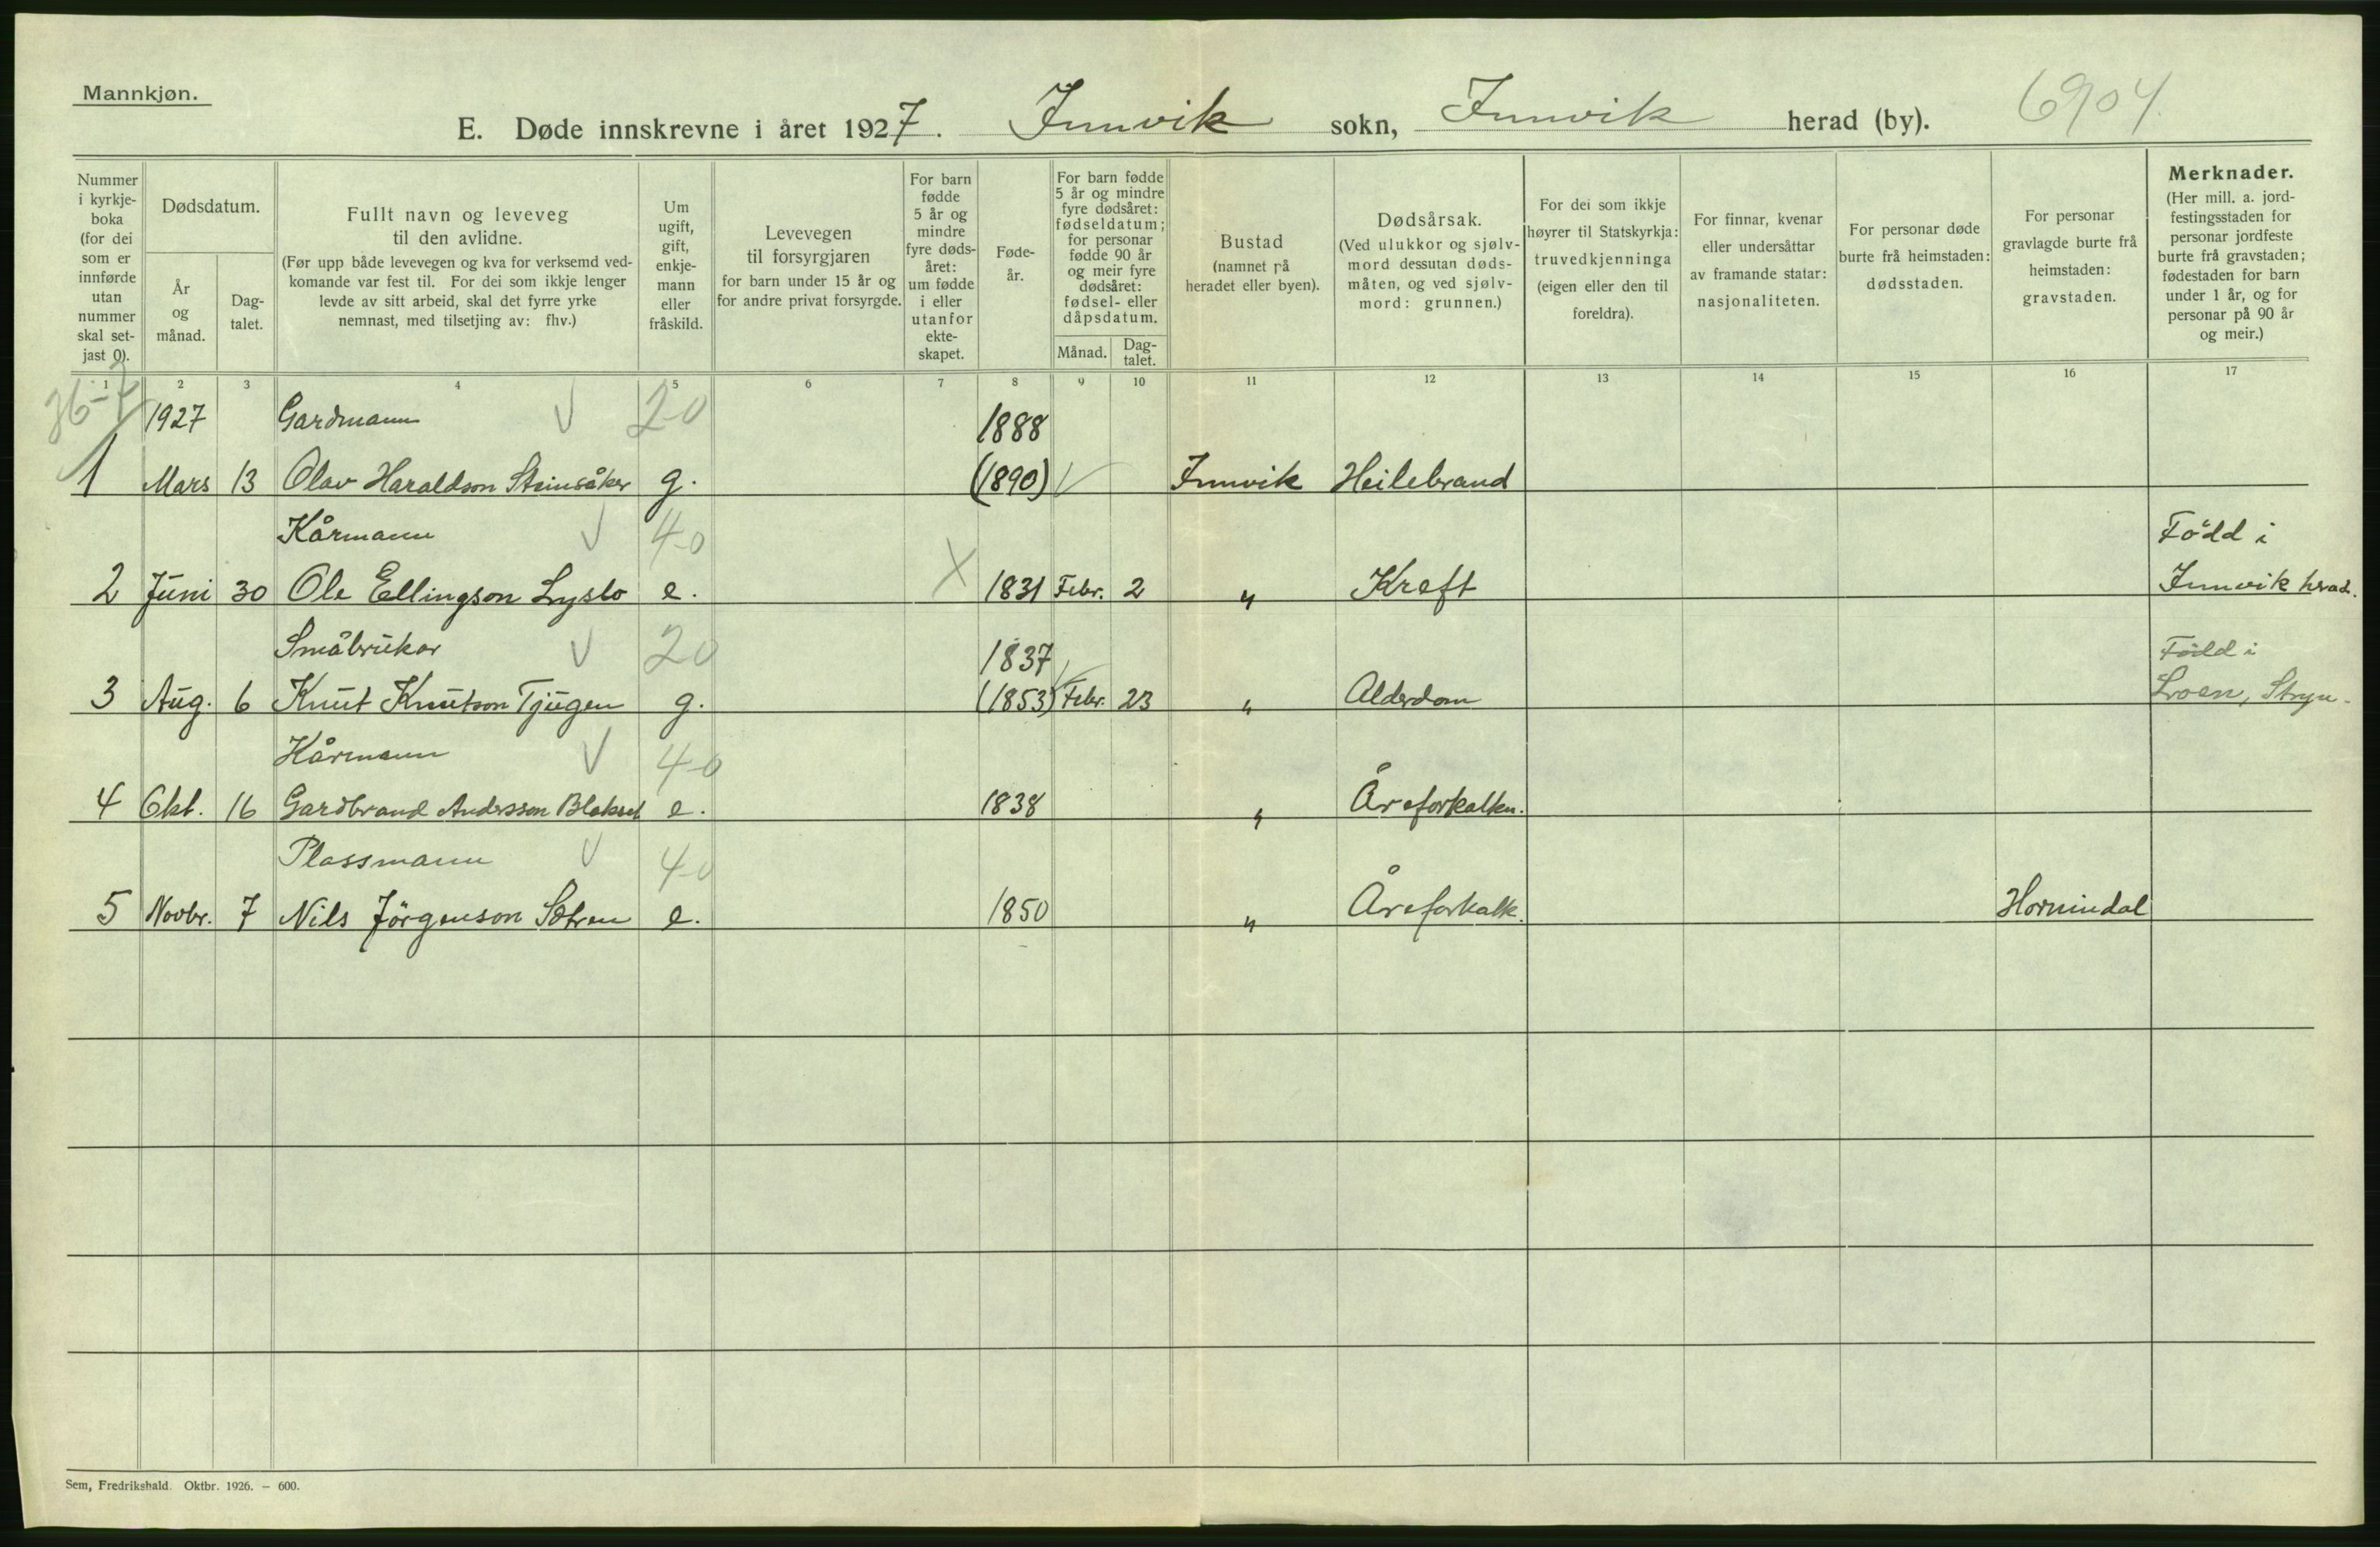 Mannkjøn.
E. Døde innskrevne i året 1927. Innvik sokn, Innvik herad (by). 6904.
Nummer i kyrkjeboka (for dei som er innførde utan nummer skal setjast 0).
Dødsdatum.
År og månad.
Dagtalet.
Fullt navn og leveveg til den avlidne.
(Før upp både levevegen og kva for verksemd vedkomande var fest til. For dei som ikkje lenger levde av sitt arbeid, skal det fyrre yrke nemnast, med tilsetjing av: fhv.)
Um ugift, gift, enkjemann eller fråskild.
Levevegen til forsyrgjaren for barn under 15 år og for andre privat forsyrgde.
For barn fødde 5 år og mindre fyre dødsåret: um fødde i eller utanfor ekteskapet.
Fødeår.
For barn fødde 5 år og mindre fyre dødsåret: fødseldatum; for personar fødde 90 år og meir fyre dødsåret: fødsel- eller dåpsdatum.
Månad.
Dagtalet.
Bustad (namnet på heradet eller byen).
Dødsårsak.
(Ved ulukkor og sjølvmord dessutan dødsmåten, og ved sjølvmord: grunnen.)
For dei som ikkje høyrer til Statskyrkja: truvedkjenninga (eigen eller den til foreldra).
For finnar, kvenar eller undersåttar av framande statar: nasjonaliteten.
For personar døde burte frå heimstaden: dødsstaden.
For personar gravlagde burte frå heimstaden: gravstaden.
Merknader.
(Her mill. a. jordfestingsstaden for personar jordfeste burte frå gravstaden; fødestaden for barn under 1 år, og for personar på 90 år og meir.)
1 2 3 4 5 6 7 8 9 10 11 12 13 14 15 16 17
36-7 1927 Gardmann 20 1888
1 Mars 13 Olav Haraldson Steinsåker g. (1890) Innvik Heilebrand
Kårmann 40 Född i
2 Juni 30 Ole Ellingson Lyslo e. 1831 Febr. 2 " Kreft Innvik herad.
Småbrukar 20 1837 Född i
3 Aug. 6 Knut Knutson Tjugen g. (1853) Febr. 23 " Alderdom Loen, Stryn.
Kårmann 40
4 Okt. 16 Gardbrand Andersson Blakset e. 1838 " Åreforkalkn.
Plassmann 40
5 Novbr. 7 Nils Jörgenson Sætren e. 1850 " Åreforkalk. Hornindal
Sem, Fredrikshald. Oktbr. 1926. – 600.